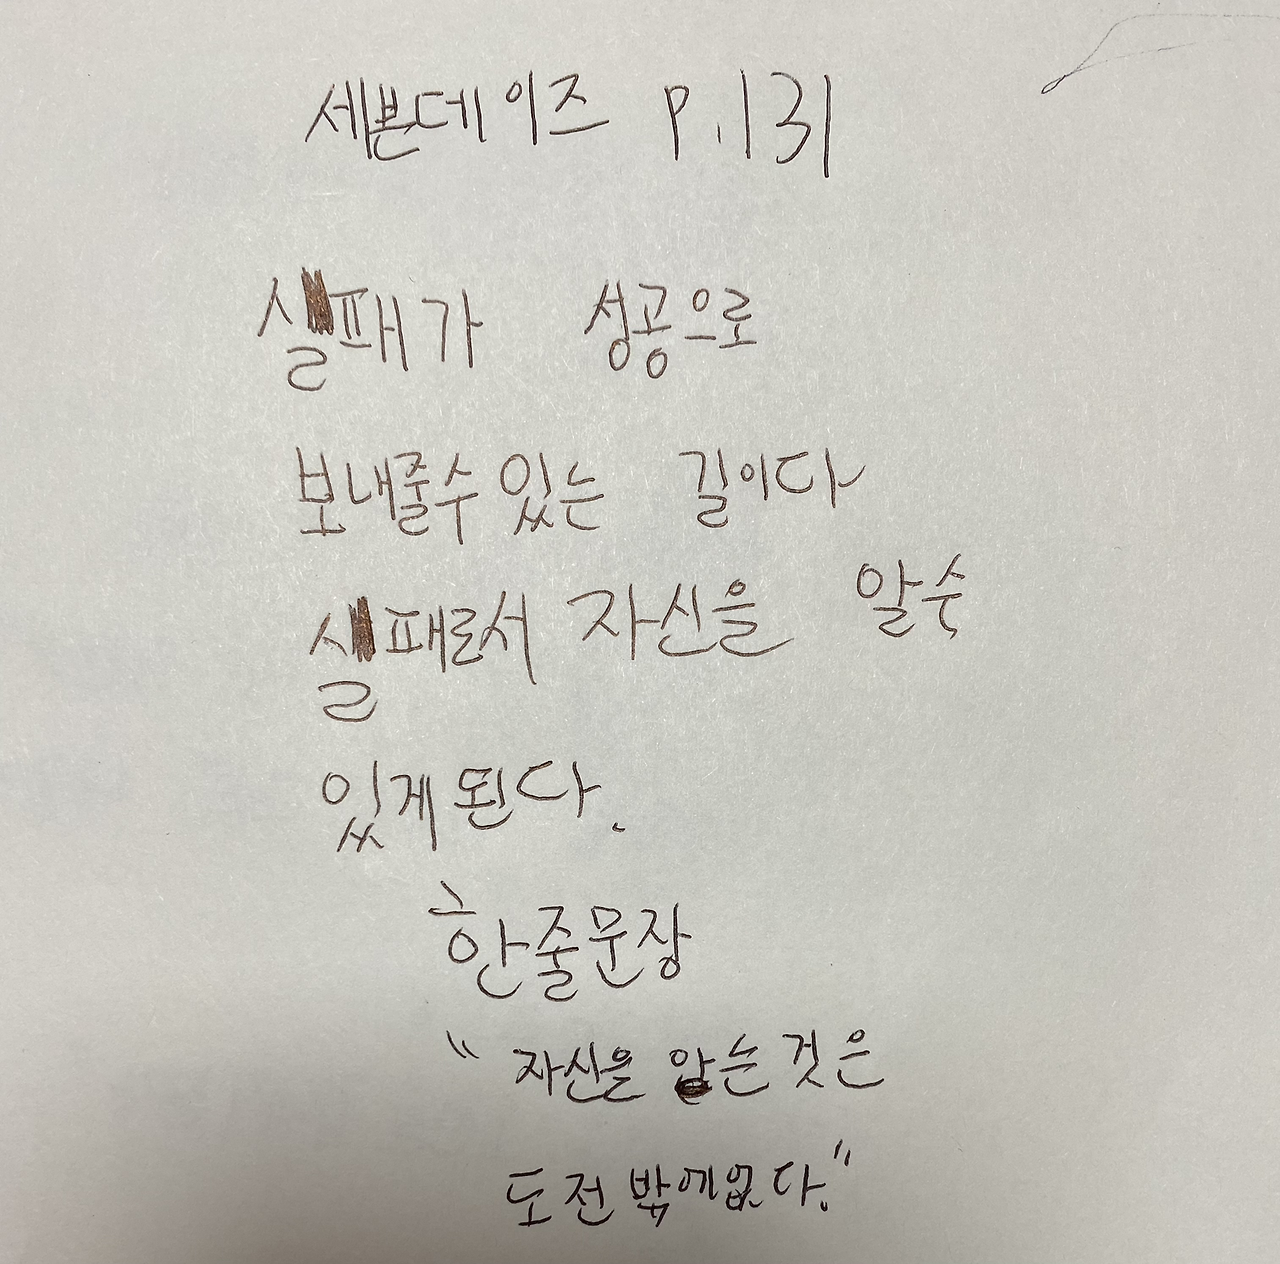 세븐데이즈 P.131
실패가 성공으로
보내줄수있는 길이다
실패로서 자신을 알수
있게된다.
한줄문장
"자신을 아는것은
도전밖에없다."